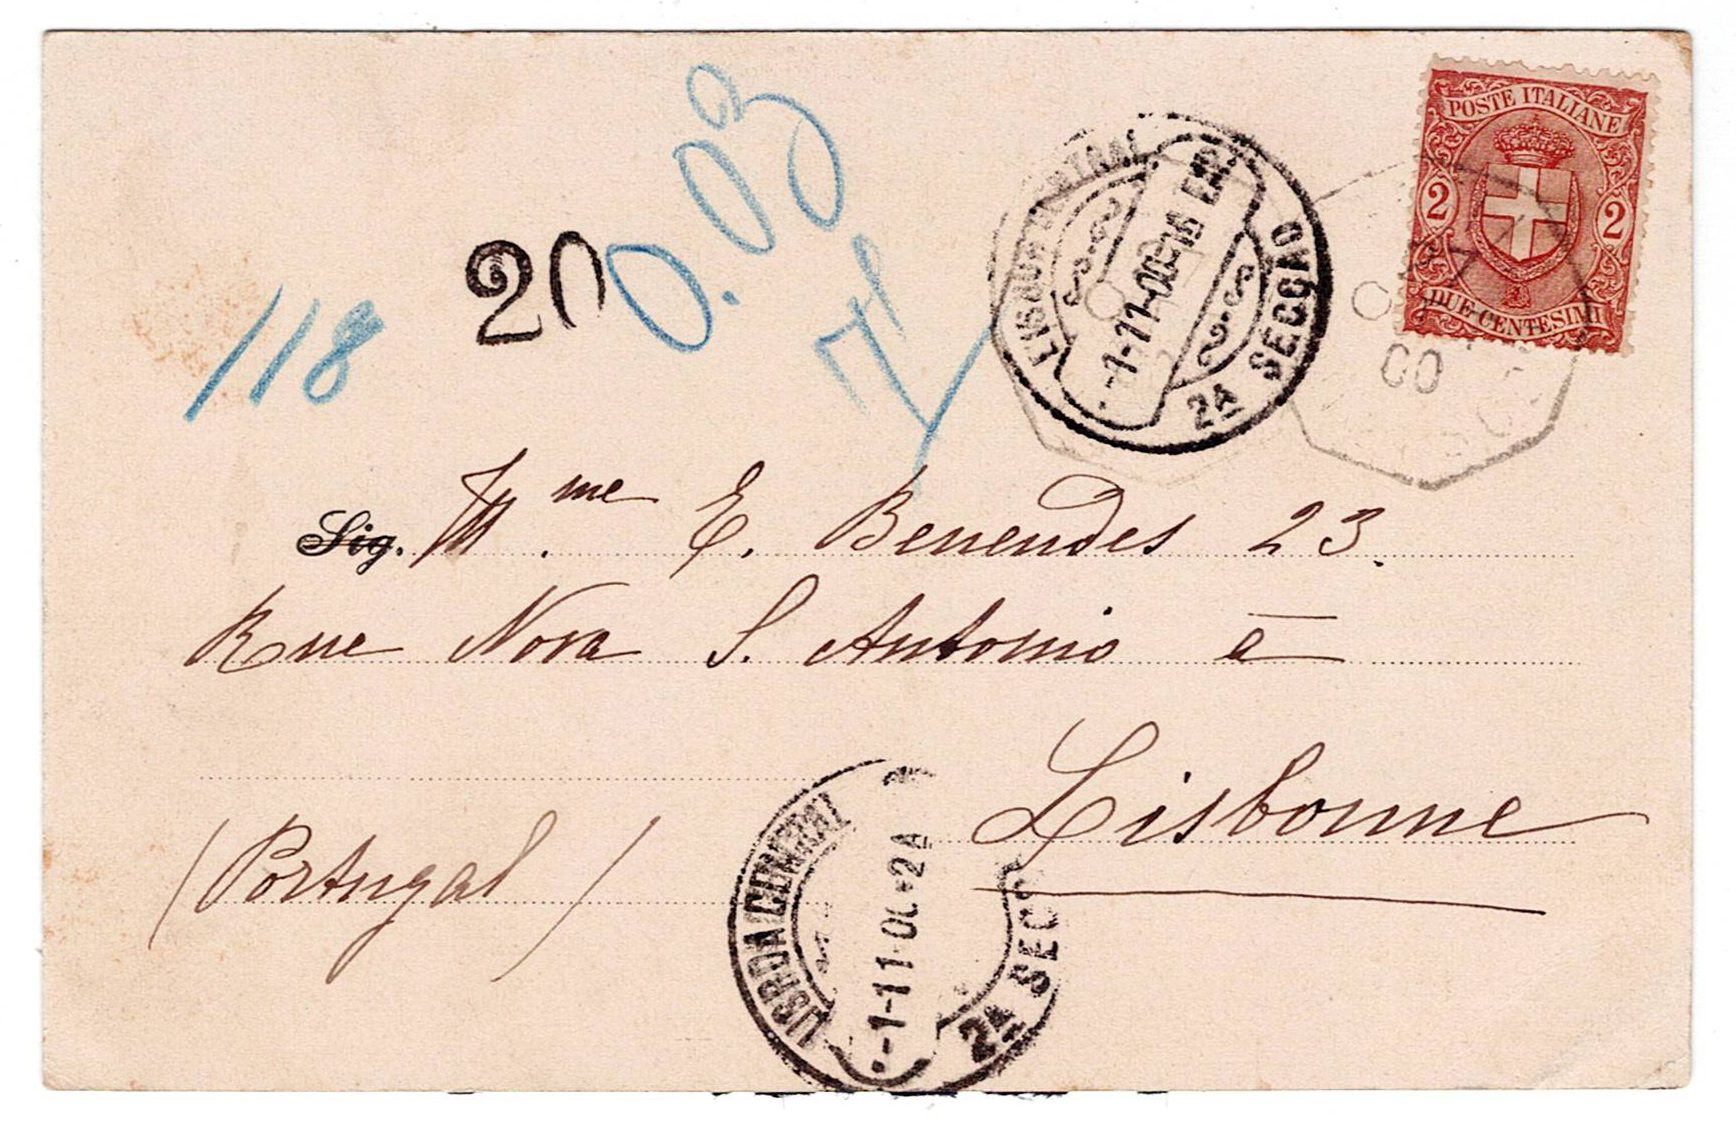 POSTE ITALIANE
2 2
DUE CENTESIMI
0.03
20
118
T
LISBOA CENTRAL
1-11-00
2A SECCÃO
00
Sig. Mme E. Benendes 23.
Rue Nova S. Antonio à
Lisbonne
(Portugal)
LISBOA CENTRAL
1-11-00 2A
2A SECC